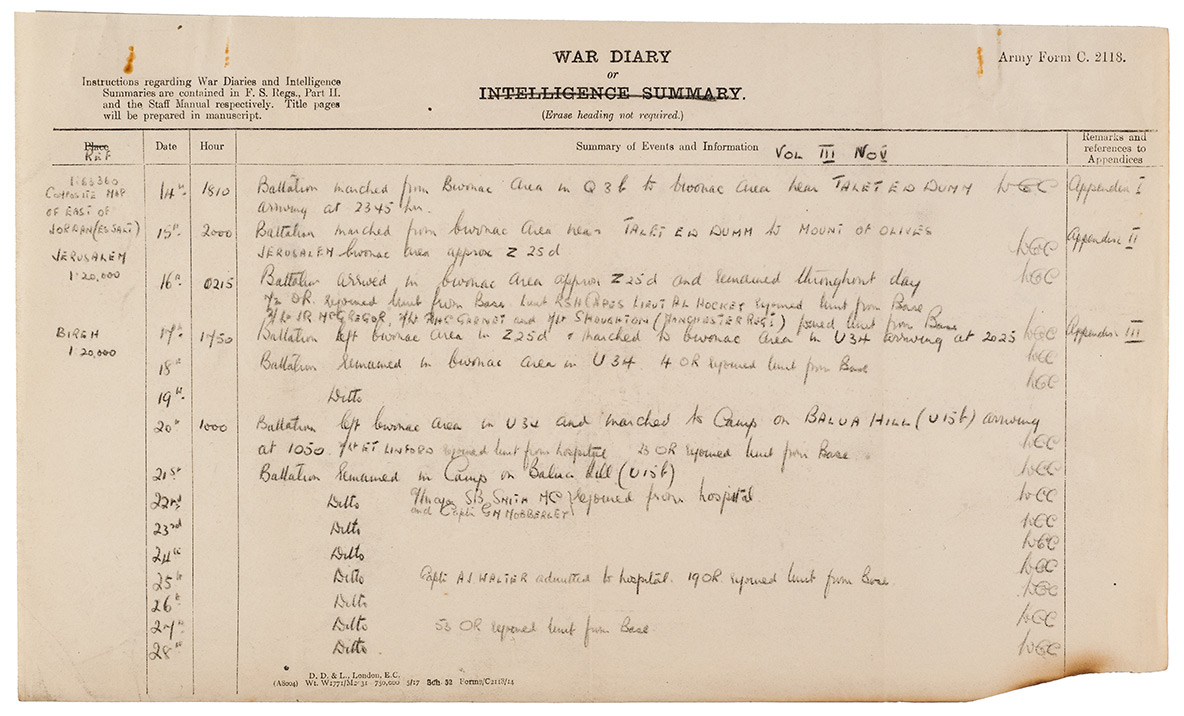 WAR DIARY
or
INTELLIGENCE SUMMARY.
(Erase heading not required.)
Army Form C. 2118.
Instructions regarding War Diaries and Intelligence
Summaries are contained in F. S. Regs., Part II.
and the Staff Manual respectively. Title pages
will be prepared in manuscript.
Place REF Date Hour Summary of Events and Information VOL III NOV Remarks and references to Appendices
1:63360
COMPOSITE MAP
OF EAST OF
JORDAN (ES SALT)
JERUSALEM
1:20,000
14th 1810 Battalion marched from Bivouac Area in Q3b to bivouac area near TALET ED DUMM Appendix I
arriving at 2345 hr.
15th 2000 Battalion marched from bivouac area near TALET ED DUMM to MOUNT OF OLIVES Appendix II
JERUSALEM bivouac area approx Z 25 d
16th 0215 Battalion arrived in bivouac area approx Z 25 d and remained throughout day
OR. rejoined unit from Base. Lieut AL HOCKEY rejoined unit from Base
JR MCGREGOR, and STOUGHTON (MANCHESTER REGT) joined unit from Base
BIREH
1:20,000
17th 1750 Battalion left bivouac area in Z25d & marched to bivouac area in U34 arriving at 2025 Appendix III
18th Battalion remained in bivouac area in U34. 4 OR rejoined unit from Base
19th Ditto
20th 1000 Battalion left bivouac area in U34 and marched to Camp on BALUA HILL (U15b) arriving
at 1050. LINFORD rejoined unit from hospital 23 OR rejoined unit from Base
21st Battalion remained in Camp on Balua Hill (U15b)
22nd Ditto SB SMITH MC rejoined from hospital
and Capt GH MOBBERLEY
23rd Ditto
24th Ditto
25th Ditto Capt AJ WALTER admitted to hospital. 19 OR rejoined unit from Base.
26th Ditto
27th Ditto 53 OR rejoined unit from Base.
28th Ditto
D. D. & L., London, E.C.
(A8004) Wt. W1771/M2 31 750,000 5/17 Sch. 52 Forms/C2118/14